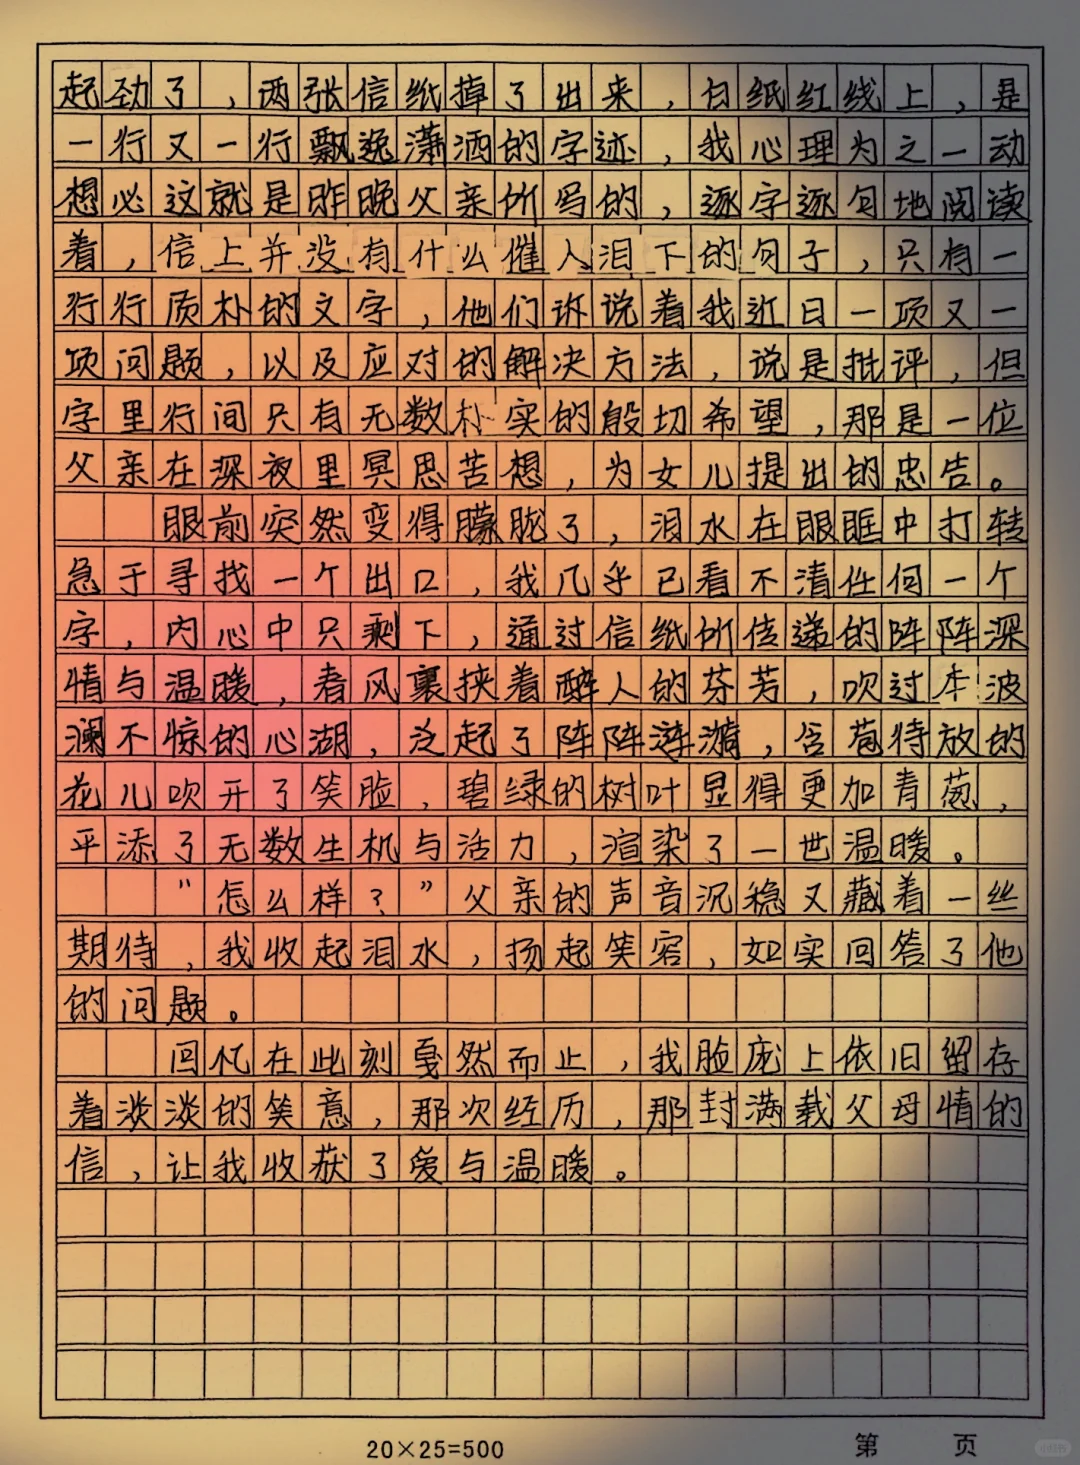 起劲了，两张信纸掉了出来，白纸红线上，是
一行又一行飘逸潇洒的字迹，我心理为之一动
想必这就是昨晚父亲所写的，逐字逐句地阅读
着，信上并没有什么催人泪下的句子，只有一
行行质朴的文字，他们诉说着我近日一项又一
项问题，以及应对的解决方法，说是批评，但
字里行间只有无数朴实的殷切希望，那是一位
父亲在深夜里冥思苦想，为女儿提出的忠告。
眼前突然变得朦胧了，泪水在眼眶中打转
急于寻找一个出口，我几乎已看不清任何一个
字，内心中只剩下，通过信纸所传递的阵阵深
情与温暖，春风裹挟着醉人的芬芳，吹过本波
澜不惊的心湖，泛起了阵阵涟漪，含苞待放的
花儿吹开了笑脸，碧绿的树叶显得更加青葱，
平添了无数生机与活力，渲染了一世温暖。
“怎么样？”父亲的声音沉稳又藏着一丝
期待，我收起泪水，扬起笑容，如实回答了他
的问题。
回忆在此刻戛然而止，我脸庞上依旧留存
着淡淡的笑意，那次经历，那封满载父母情的
信，让我收获了爱与温暖。
20×25=500
第 页
小红书